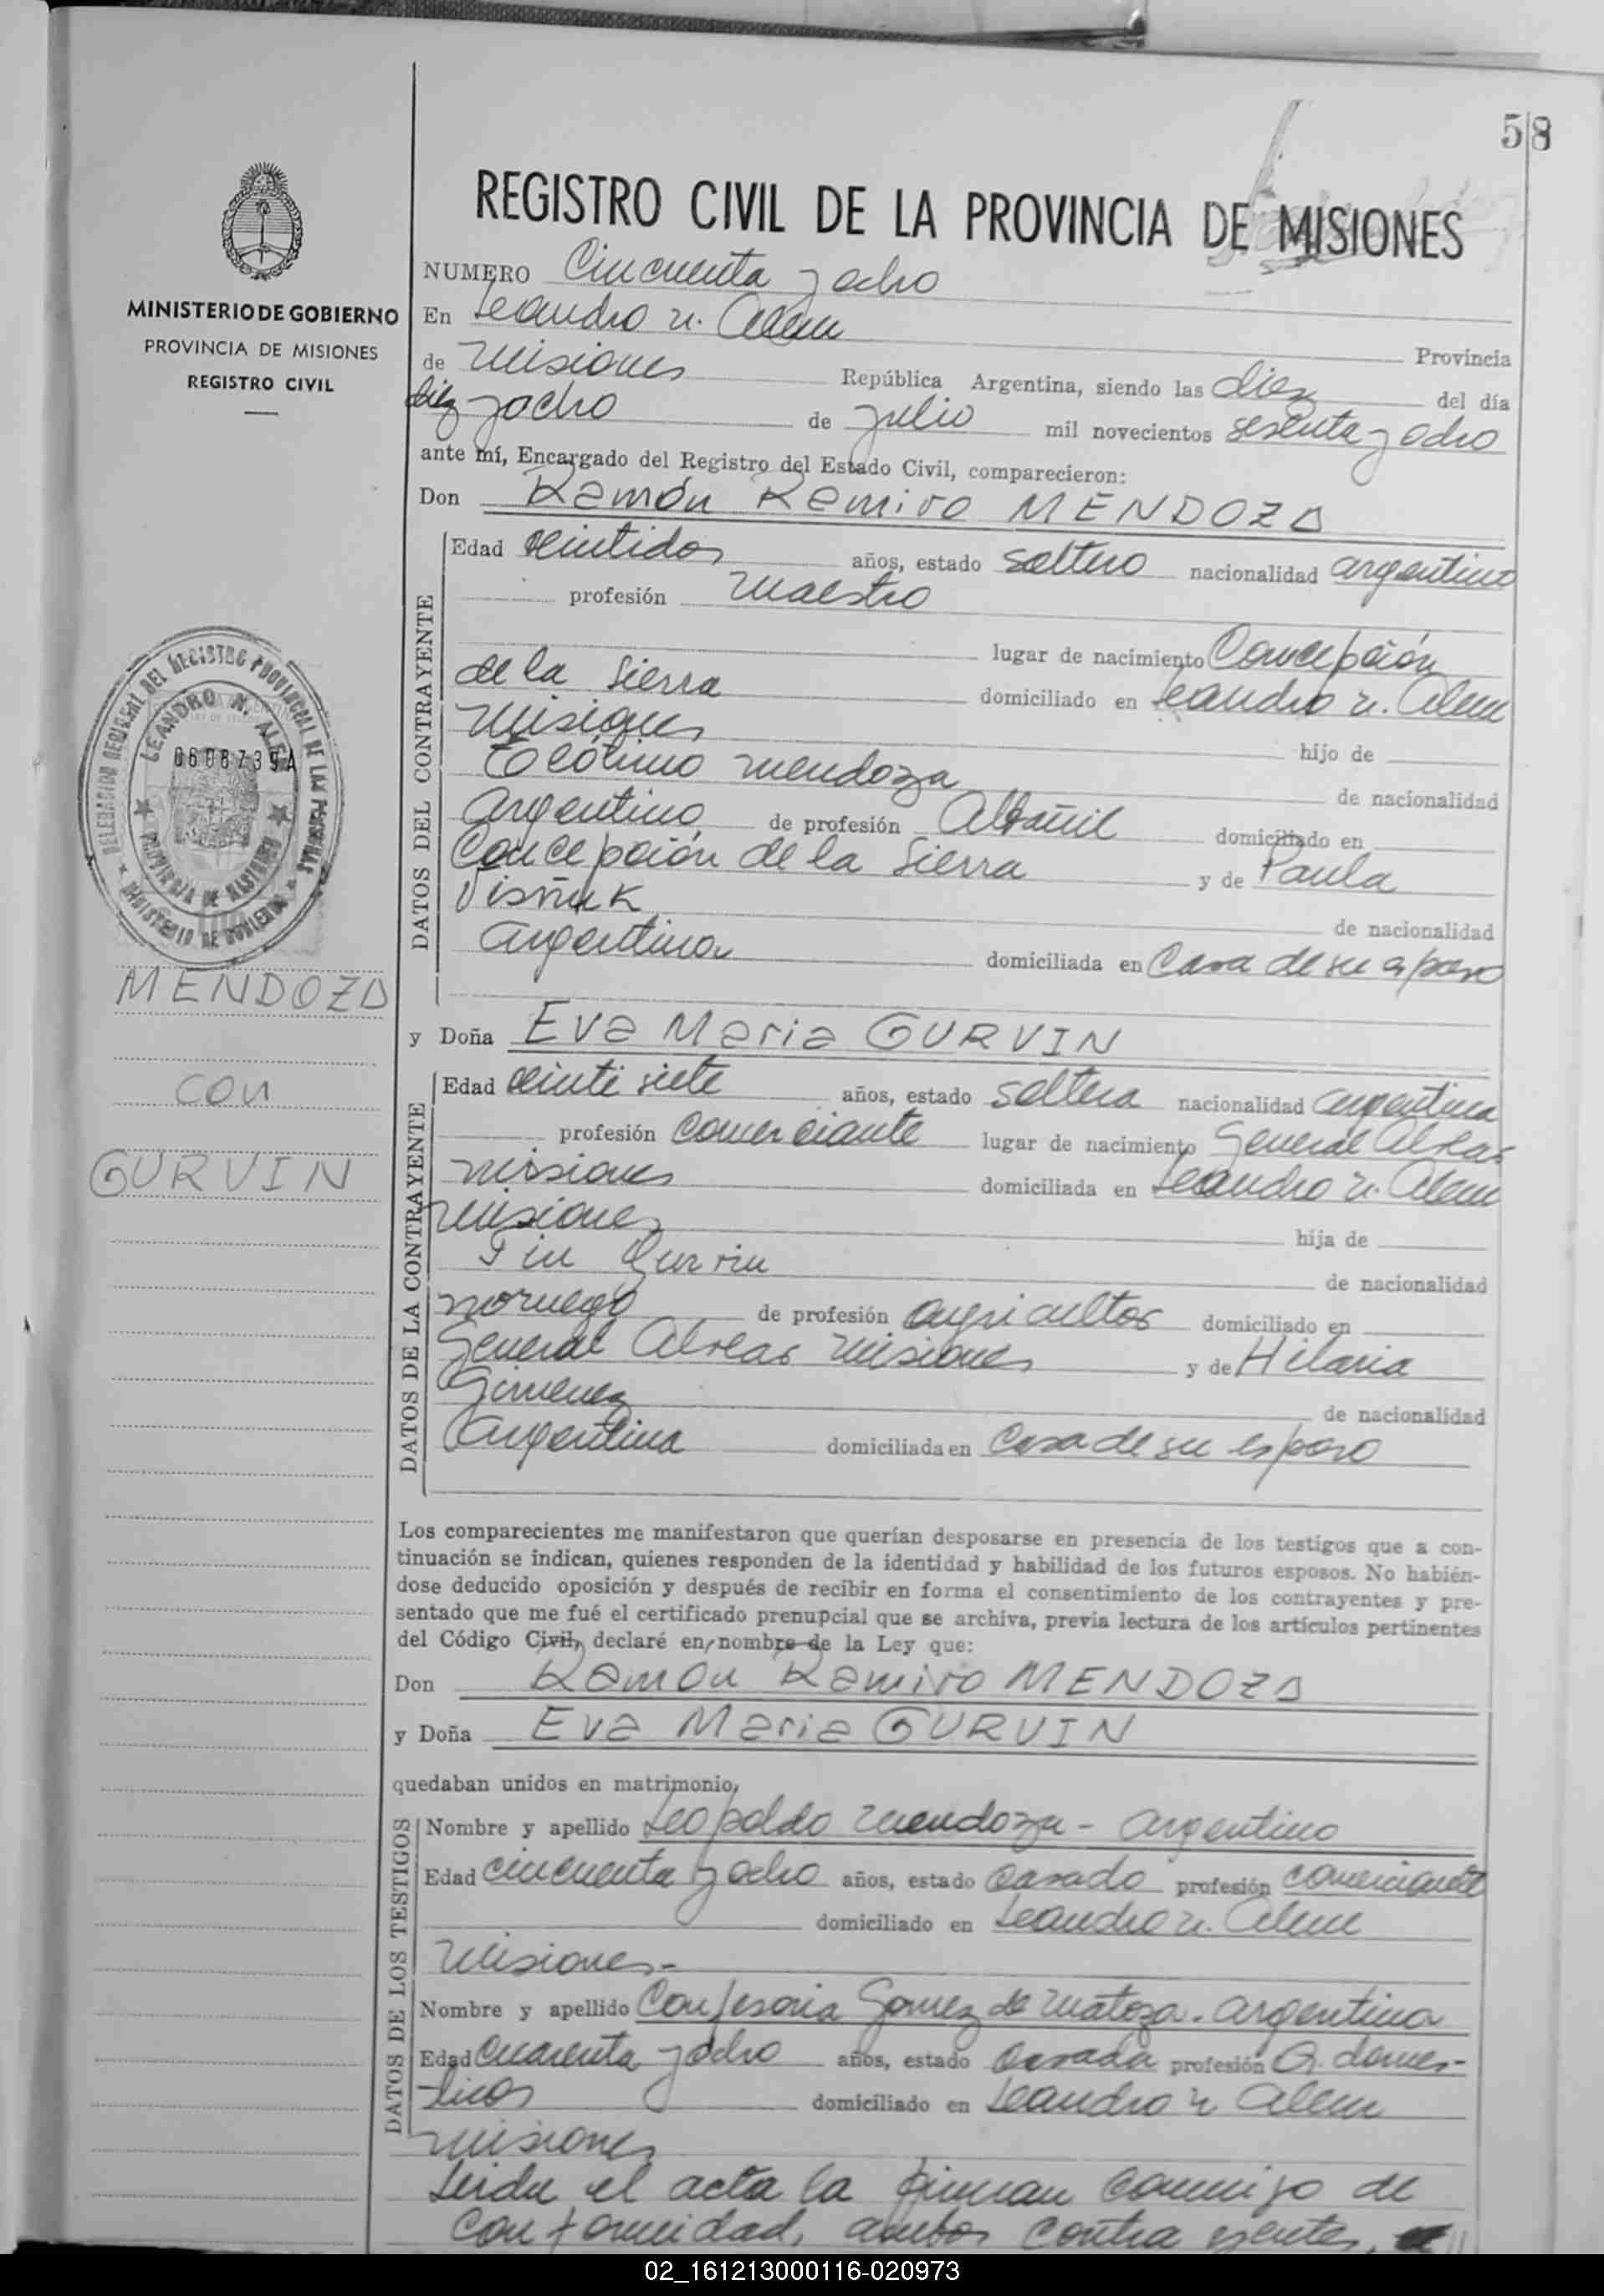 58
REGISTRO CIVIL DE LA PROVINCIA DE MISIONES
MINISTERIO DE GOBIERNO
PROVINCIA DE MISIONES
REGISTRO CIVIL
NUMERO Cincuenta y ocho
En Leandro N. Alem Provincia
de Misiones República Argentina, siendo las diez del día
diez y ocho de julio mil novecientos sesenta y ocho
ante mí, Encargado del Registro del Estado Civil, comparecieron:
Don Ramón Ramiro MENDOZA
DATOS DEL CONTRAYENTE
Edad veintidos años, estado soltero nacionalidad argentino
profesión maestro
lugar de nacimiento Concepción
de la Sierra domiciliado en Leandro N. Alem
Misiones hijo de
Mendoza de nacionalidad
Argentino de profesión Albañil domiciliado en
Concepción de la Sierra y de Paula
de nacionalidad
argentina domiciliada en Casa de su esposo
LEANDRO N. ALEM
060873 9A
PROVINCIA DE MISIONES
MINISTERIO DE GOBIERNO
MENDOZA
con
GURVIN
y Doña Eva Maria GURVIN
DATOS DE LA CONTRAYENTE
Edad veinti siete años, estado soltera nacionalidad argentina
profesión comerciante lugar de nacimiento General Alvear
Misiones domiciliada en Leandro N. Alem
Misiones hija de
Gurvin de nacionalidad
noruego de profesión agricultor domiciliado en
General Alvear Misiones y de Hilaria
Gimenez de nacionalidad
Argentina domiciliada en Casa de su esposo
Los comparecientes me manifestaron que querían desposarse en presencia de los testigos que a con-
tinuación se indican, quienes responden de la identidad y habilidad de los futuros esposos. No habién-
dose deducido oposición y después de recibir en forma el consentimiento de los contrayentes y pre-
sentado que me fué el certificado prenupcial que se archiva, previa lectura de los artículos pertinentes
del Código Civil, declaré en nombre de la Ley que:
Don Ramón Ramiro MENDOZA
y Doña Eva Maria GURVIN
quedaban unidos en matrimonio,
DATOS DE LOS TESTIGOS
Nombre y apellido Leopoldo Mendoza - Argentino
Edad cincuenta y ocho años, estado casado profesión comerciante
domiciliado en Leandro N. Alem
Misiones.-
Nombre y apellido Confesoria Gomez de Matoza. argentina
Edad cuarenta y ocho años, estado casada profesión Q. domes-
ticos domiciliado en Leandro N Alem
Misiones
Leida el acta la firman conmigo de
conformidad, ambos contrayentes,
02_161213000116-020973